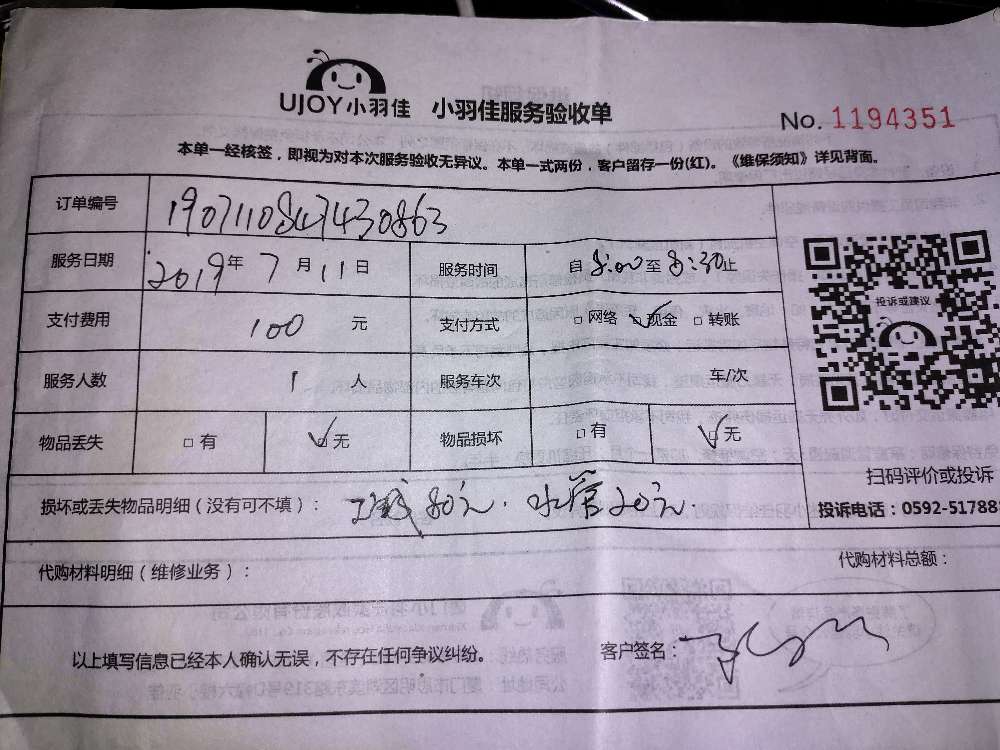 UJOY小羽佳 小羽佳服务验收单
No. 1194351
本单一经核签，即视为对本次服务验收无异议。本单一式两份，客户留存一份(红)。《维保须知》详见背面。
订单编号 190711084743​0863
服务日期 2019年7月11日 服务时间 自8:00至8:30止
支付费用 100 元 支付方式 □网络 ☑现金 □转账
服务人数 1 人 服务车次 车/次
物品丢失 □有 ☑无 物品损坏 □有 ☑无
投诉或建议
扫码评价或投诉
投诉电话：0592-51788
损坏或丢失物品明细（没有可不填）： 80元. 水管20元.
代购材料明细（维修业务）： 代购材料总额：
以上填写信息已经本人确认无误，不存在任何争议纠纷。 客户签名：